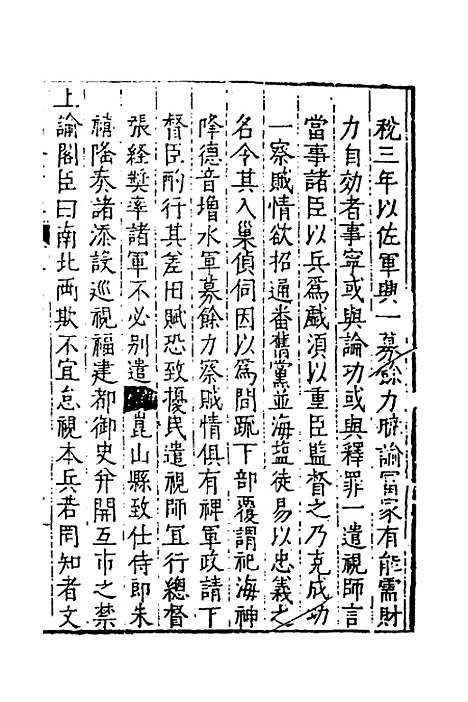 稅三年以佐軍興一募餘力聽論富家有能需財
力自効者事寧或與論功或與釋罪一遣視師言
當事諸臣以兵爲戲須以重臣監督之乃克成功
一察賊情欲招通番舊黨並海塩徒易以忠義之
名令其入巢偵伺因以爲間䟽下部覆謂祀海神
降德音増水軍募餘力察賊情俱有裨軍政請下
督臣酌行其差田賦恐致擾民遣視師宜行總督
張經奬率諸軍不必别遣崑山縣致仕侍郎朱
禧隆奏諸添設廵視福建都御史并開互市之禁
上諭閣臣曰南北兩欺不宜怠視本兵若罔知者文